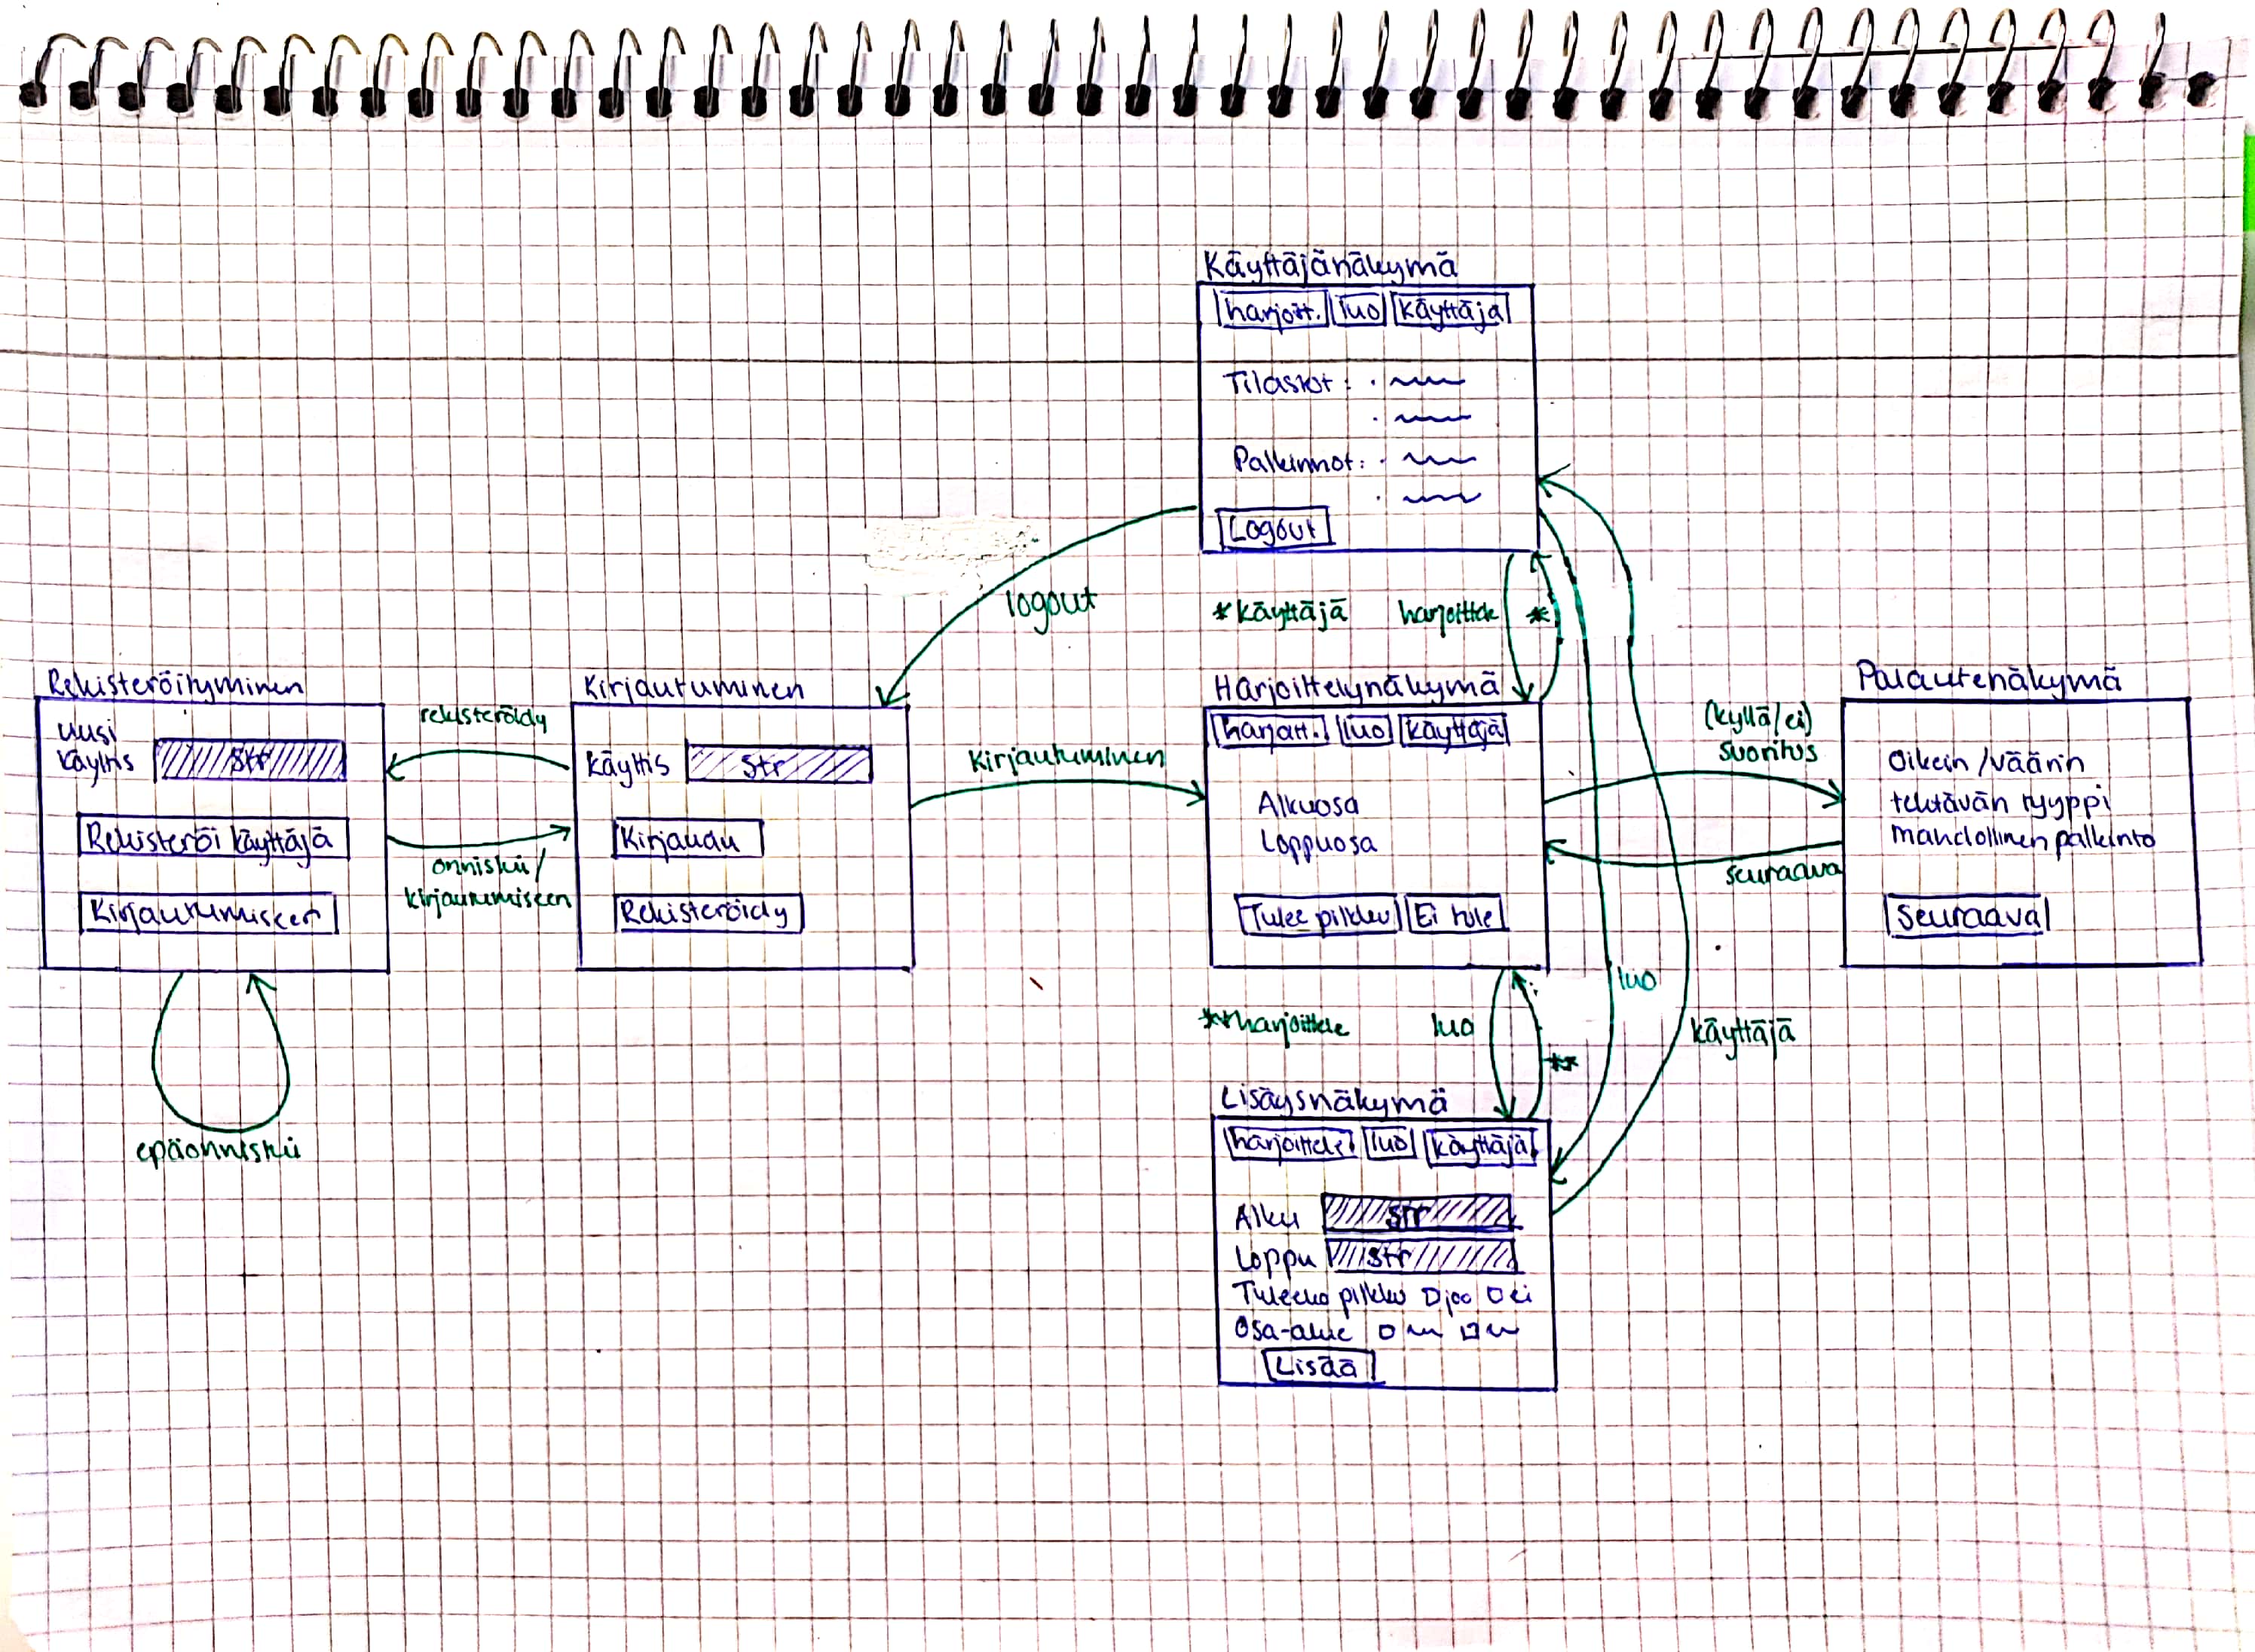 Käyttäjänäkymä
harjoitt. luo Käyttäjä
Tilastot:
Palkinnot:
Logout
logout
*Käyttäjä harjoittele *
Rekisteröityminen
uusi
käyttis str
Rekisteröi käyttäjä
Kirjautumiseen
epäonnistui
rekisteröidy
onnistui/
kirjautumiseen
Kirjautuminen
käyttis str
Kirjaudu
Rekisteröidy
Kirjautuminen
Harjoittelynäkymä
harjoitt. luo käyttäjä
Alkuosa
Loppuosa
Tulee pilkku Ei tule
(kyllä/ei)
suoritus
seuraava
Palautenäkymä
Oikein/väärin
tehtävän tyyppi
mahdollinen palkinto
Seuraava
**harjoittele luo **
luo
käyttäjä
Lisäysnäkymä
harjoittele luo käyttäjä
Alku str
Loppu str
Tuleeko pilkku joo ei
Osa-alue
Lisää